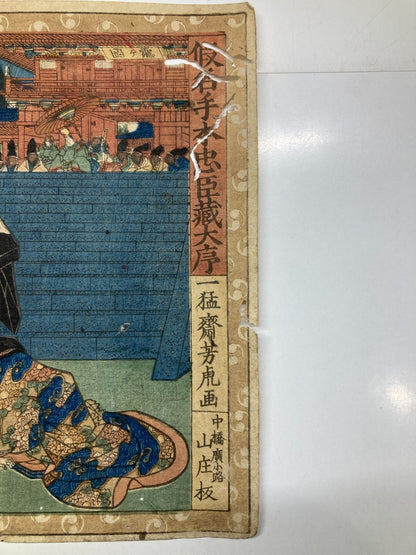 仮名手本忠臣蔵大序
一猛齋芳虎画
中橋廣小路
山庄板